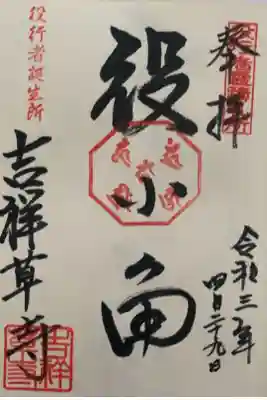 奉拝
令和三年
四月二十九日
役小角
役行者誕生所
吉祥草寺